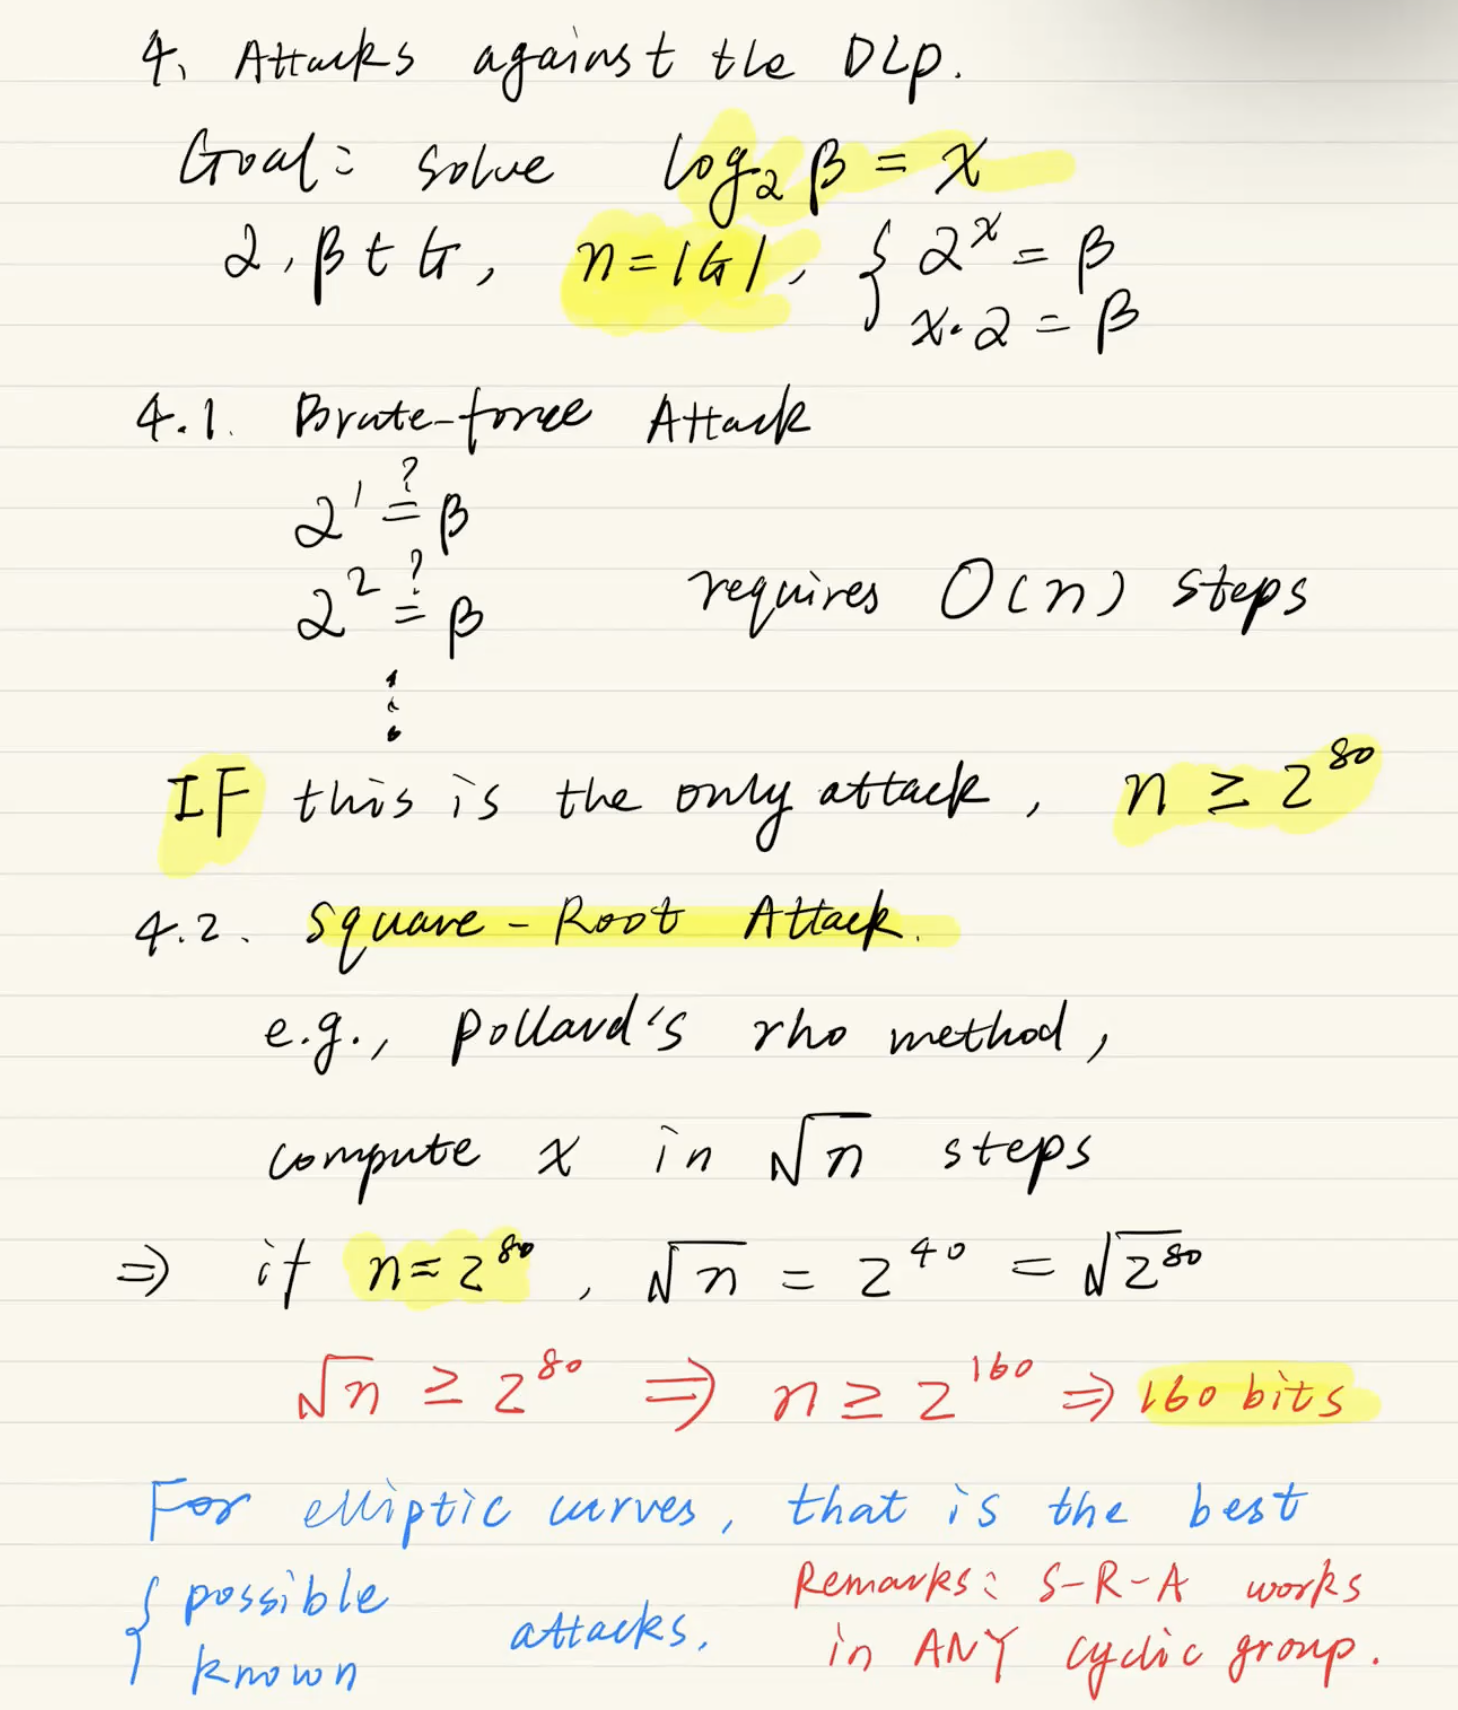 4. Attacks against the DLP.
Goal: solve log_α β = x
α, β ∈ G, n = |G|, { α^x = β
x·α = β
4.1. Brute-force Attack
α^1 ≟ β
α^2 ≟ β requires O(n) steps
⋮
IF this is the only attack, n ≥ 2^80
4.2. Square-Root Attack.
e.g., Pollard's rho method,
compute x in √n steps
⇒ if n = 2^80, √n = 2^40 = √2^80
√n ≥ 2^80 ⇒ n ≥ 2^160 ⇒ 160 bits
For elliptic curves, that is the best
{ possible
known attacks.
Remarks: S-R-A works
in ANY cyclic group.